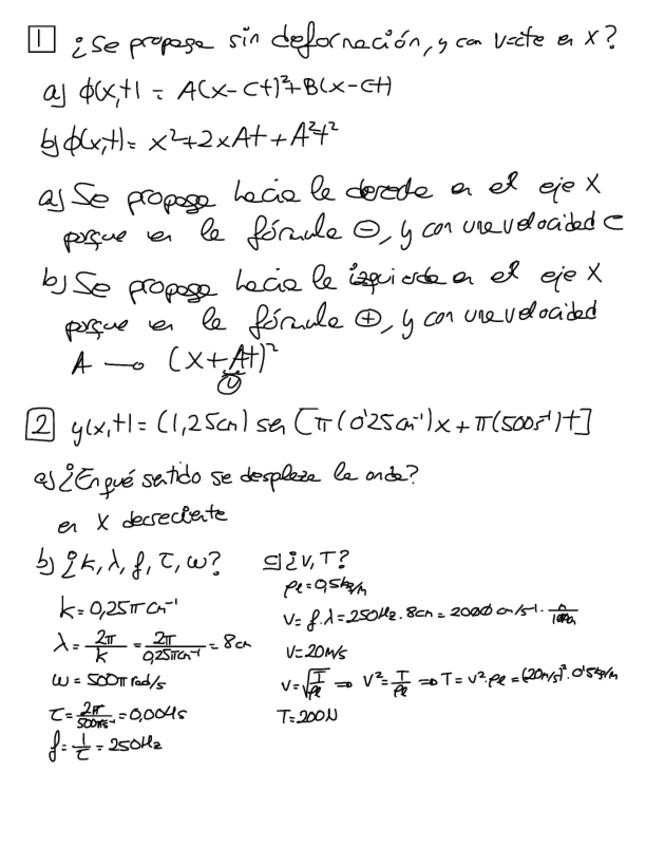 1 ¿Se propaga sin deformación, y con v=cte en x?
a) ϕ(x,t) = A(x-ct)²+B(x-ct)
b) ϕ(x,t) = x²+2xAt+A²t²
a) Se propaga hacia la derecha en el eje X
porque en la fórmula ⊖, y con una velocidad c
b) Se propaga hacia la izquierda en el eje X
porque en la fórmula ⊕, y con una velocidad
A → (x+At)²
v
2 y(x,t) = (1,25cm) sen [π(0'25cm⁻¹)x + π(500s⁻¹)t]
a) ¿En qué sentido se desplaza la onda?
en X decreciente
b) ¿k, λ, f, τ, ω?
k = 0,25π cm⁻¹
λ = 2π/k = 2π/0,25πcm⁻¹ = 8cm
ω = 500π rad/s
τ = 2π/500πs⁻¹ = 0,004s
f = 1/τ = 250Hz
c) ¿v, T?
μ = 0,5kg/m
v = f·λ = 250Hz · 8cm = 2000 cm/s · m/100cm
v = 20m/s
v = √(T/μ) ⇒ v² = T/μ ⇒ T = v²·μ = (20m/s)²·0'5kg/m
T = 200N